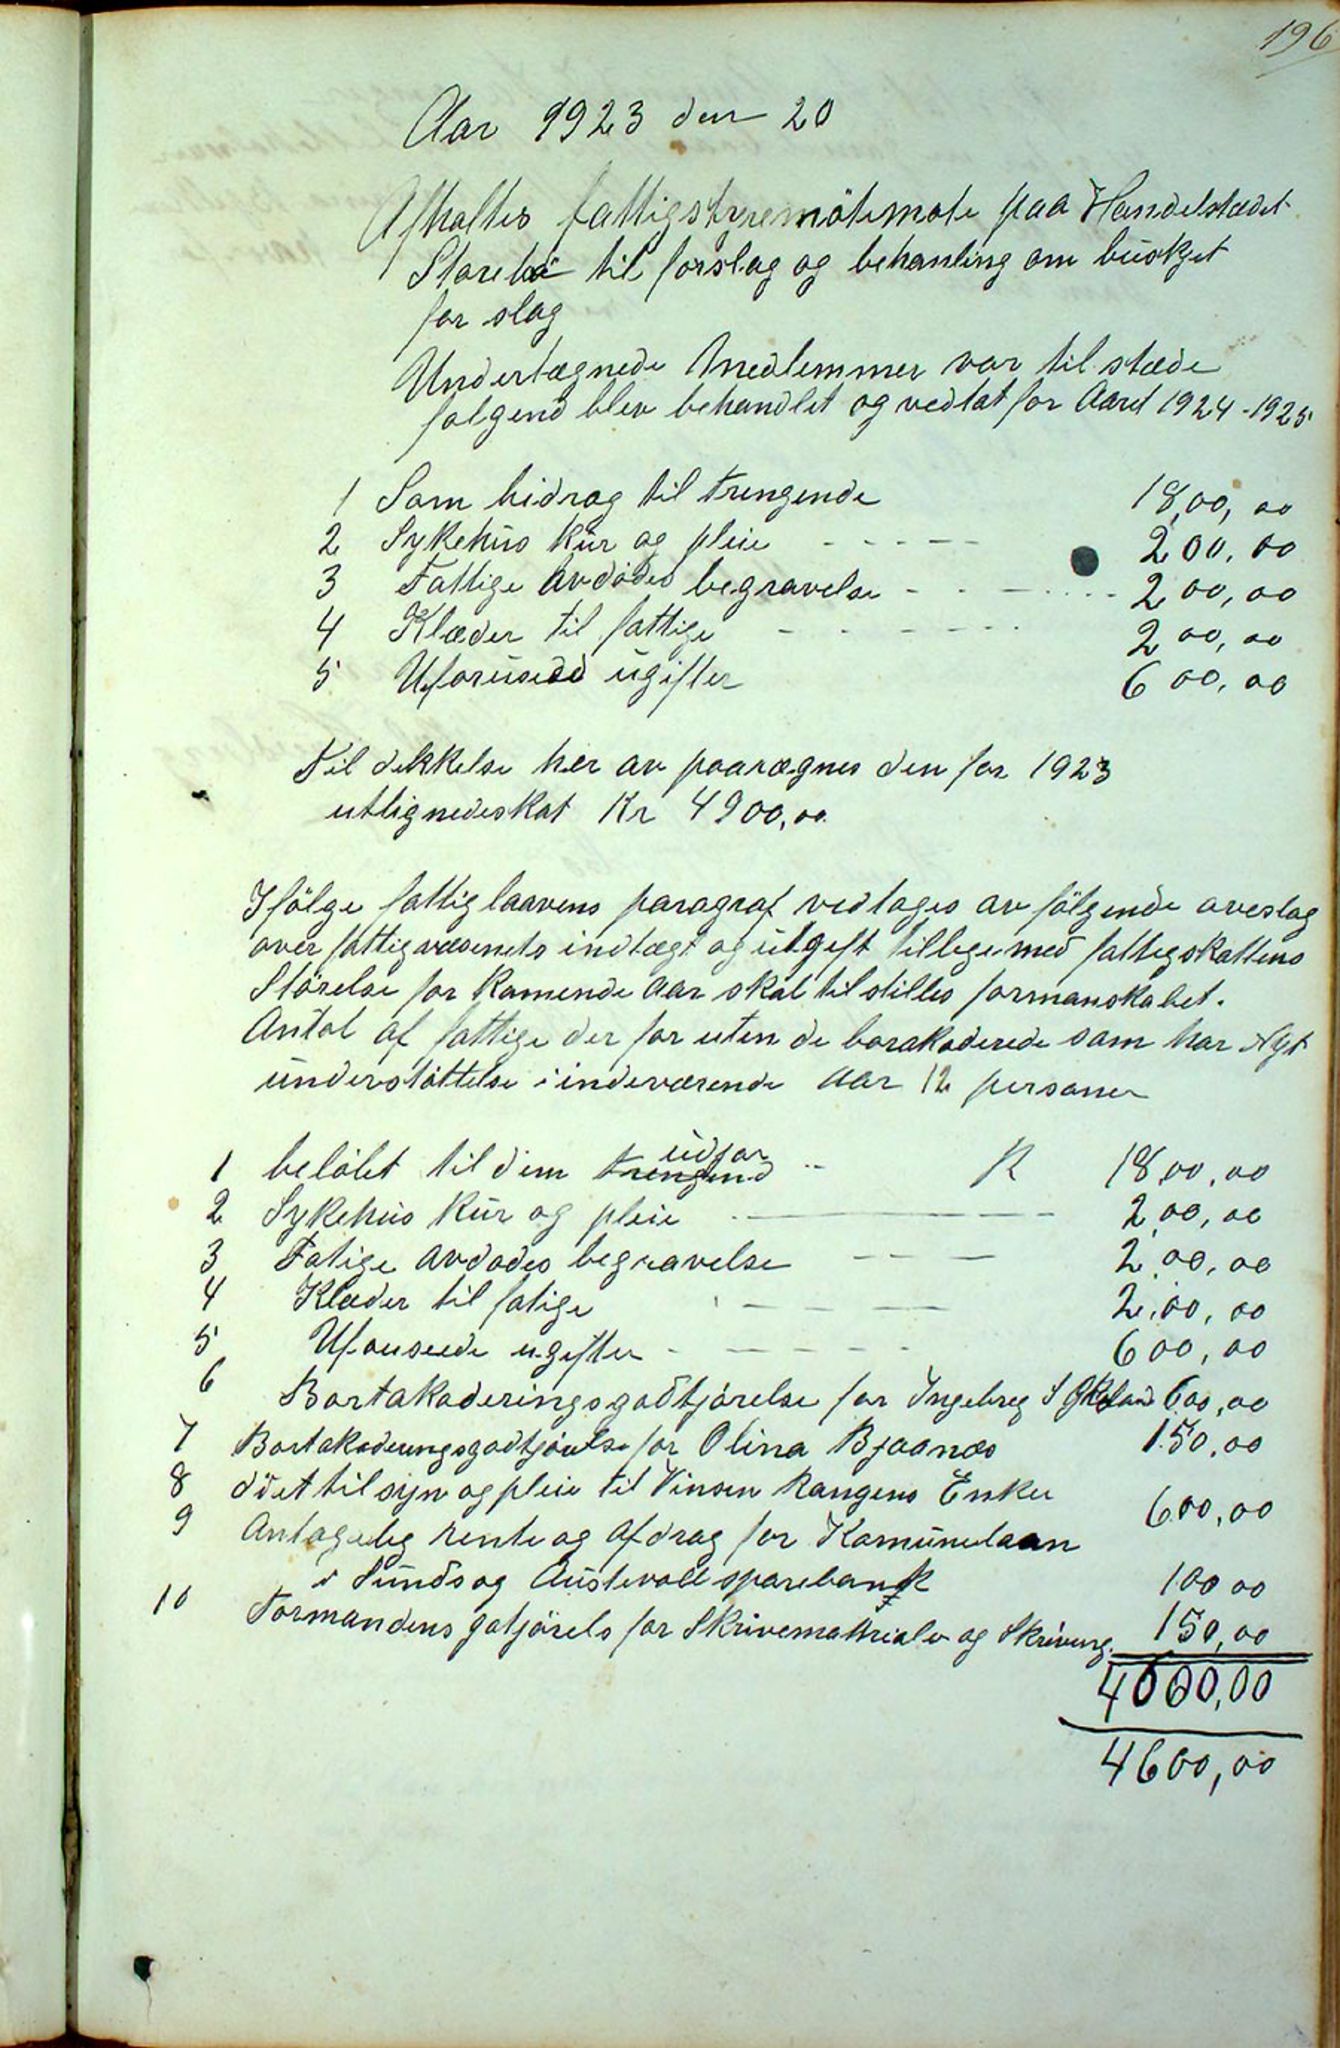 196
Aar 1923 den 20
Afholtes fattigstyremötemote paa Handelstædet
Storebö til forslag og behanling om büdsget
for slag
Undertægnede Medlemmer var til stæde
folgend blev behandlet og vedtat for Aaret 1924-1925
1 Som bidrag til trengende 18,00,00
2 Sykehüs kür og pleie - - - - - 200,00
3 Fattige avdödes begravelse - - - . . . . 200,00
4 Klæder til fattige - - - - - - 200,00
5 Uforüsedd ügifter 600,00
Til dekkelse her av paarægnes den for 1923
utlignedeskat Kr 4900,00
Ifölge fattiglaavens paragraf vedtages av fölgende overslag
over fattigvæsenets indtægt og ütgift tillegemed fattigskattens
Störelse for Komende Aar skal tilstilles formanskabet.
Antal af fattige der for uten de borakoderede som har Nyt
ünderstöttelse i indeværende Aar 12 personer
1 belöbet til dem trengend üdfor .. K 1800,00
2 Sykehüs kür og pleie 200,00
3 Fatige avdodes begravelse - - - 200,00
4 Klæder til fatige - - - 200,00
5 Uforuseede ugifter - - - - - 600,00
6 Bortakoderingsgodtjörelse for Ingebreg S 600,00
7 Bortakoderungsgodtjörelse for Olina Bjaanæs 150,00
8 didt tilsyn og pleie til Vinsen Kangens Enke 600,00
9 Antagelig rente og Afdrag for Komünelaan
i Sünds og Aüstevoll sparebank 100 00
10 Formandens gotjörels for Skrivematrialer og Skriving. 150,00
4000,00
4600,00